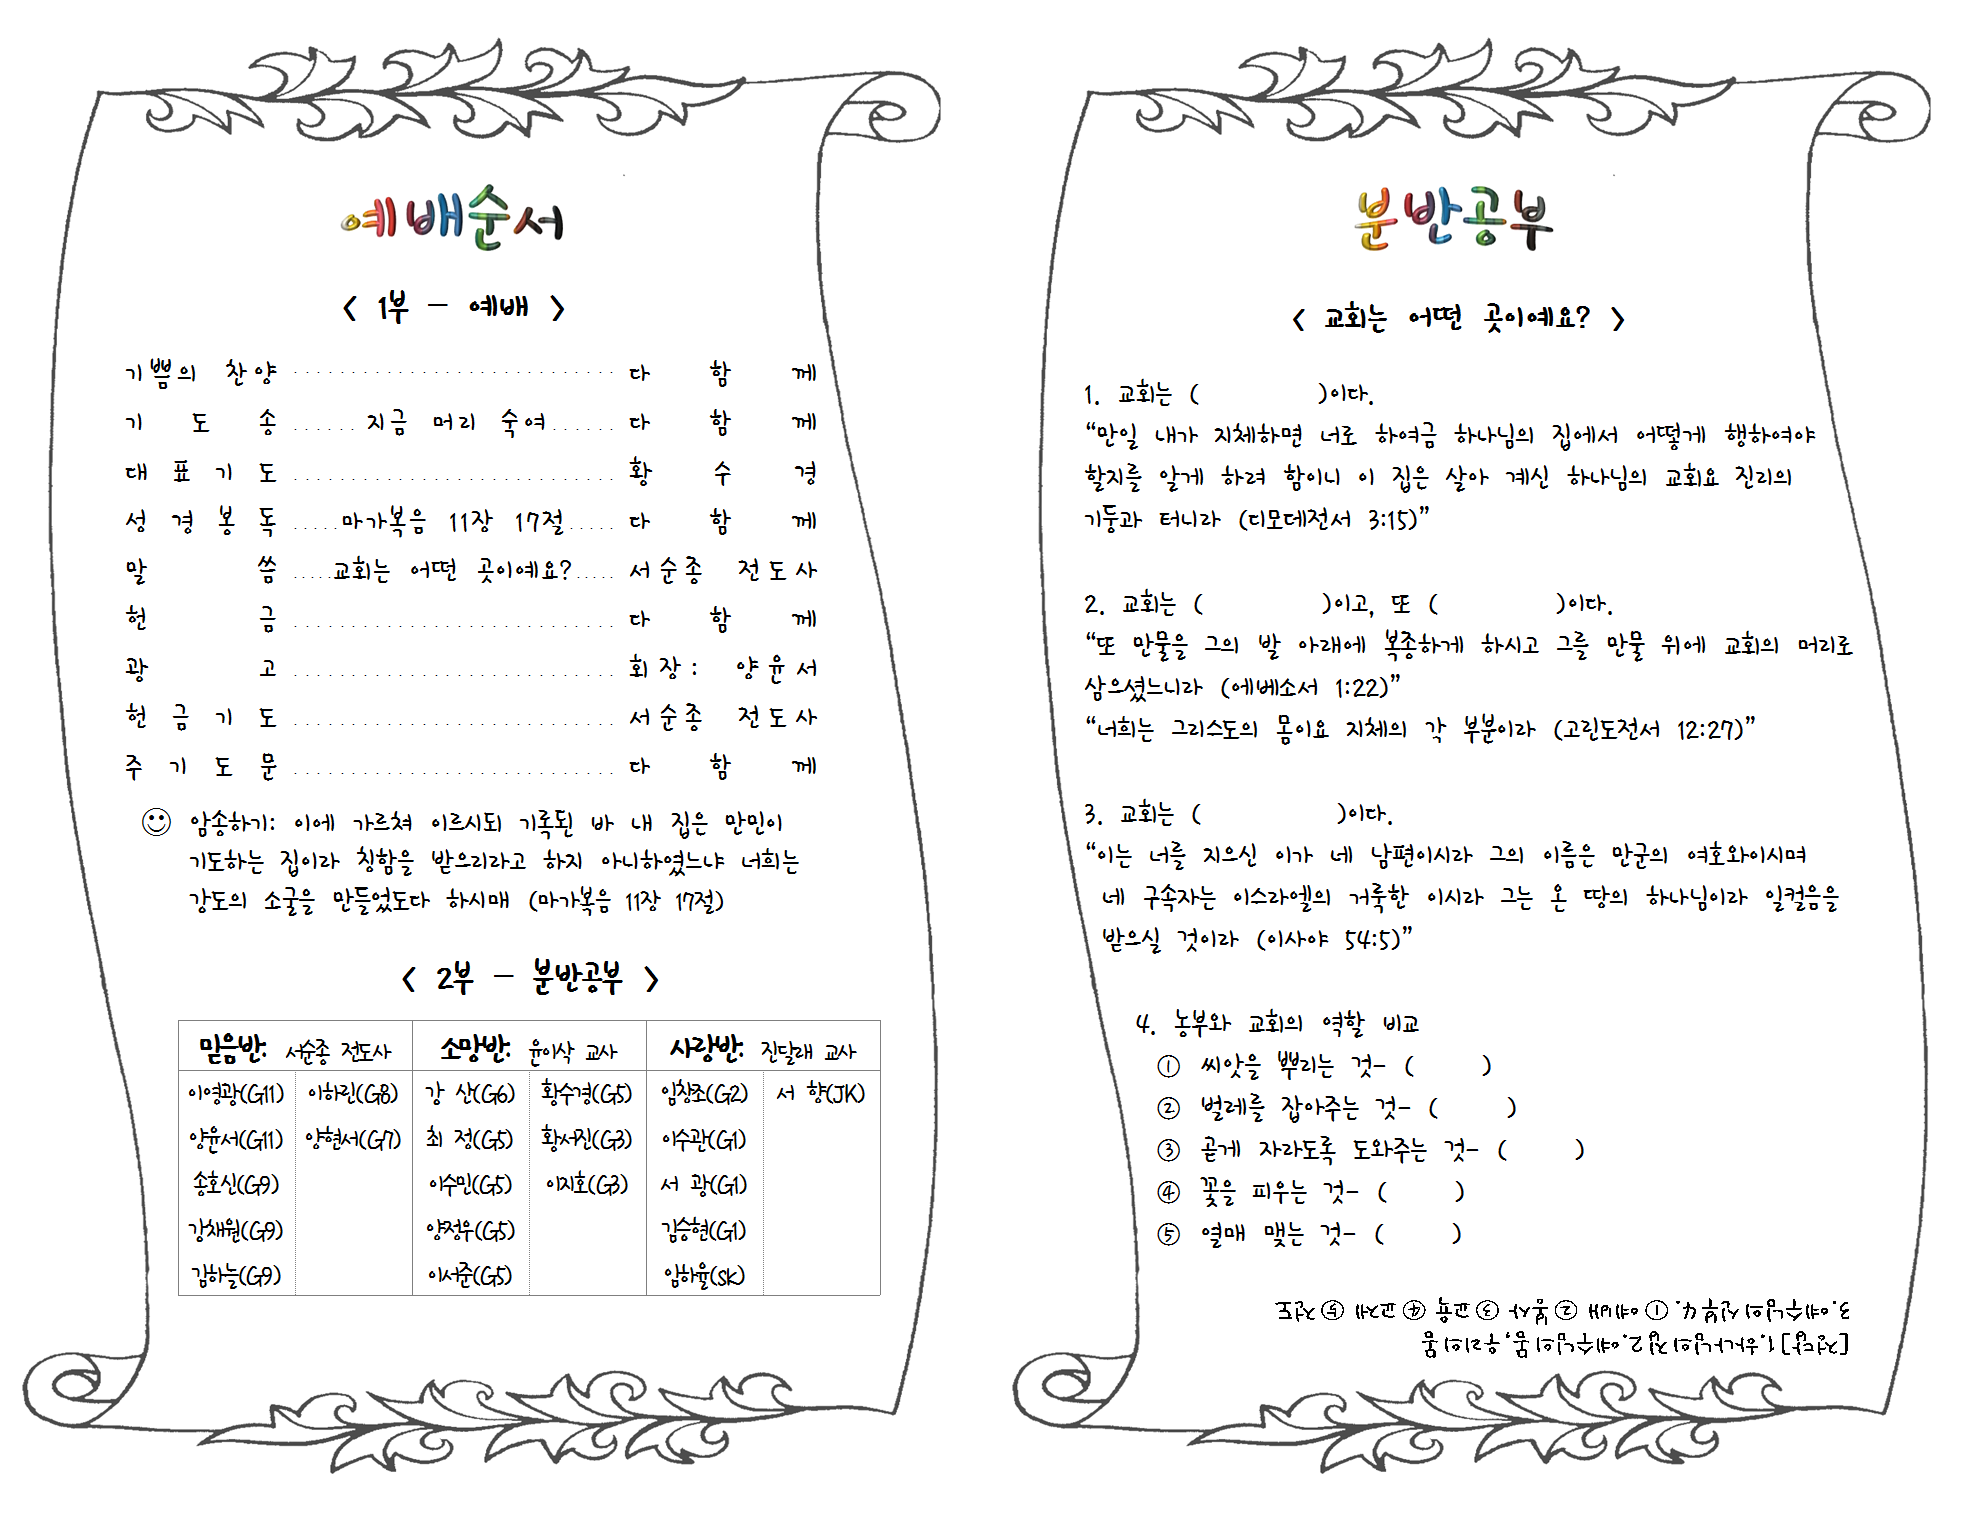 예배순서
< 1부 - 예배 >
기쁨의 찬양 ............................. 다 함 께
기 도 송 ...... 지금 머리 숙여 ...... 다 함 께
대 표 기 도 ............................. 황 수 경
성 경 봉 독 ..... 마가복음 11장 17절 ..... 다 함 께
말 씀 ..... 교회는 어떤 곳이예요? ..... 서순종 전도사
헌 금 ............................. 다 함 께
광 고 ............................. 회장: 양윤서
헌 금 기 도 ............................. 서순종 전도사
주 기 도 문 ............................. 다 함 께
☺ 암송하기: 이에 가르쳐 이르시되 기록된 바 내 집은 만민이
기도하는 집이라 칭함을 받으리라고 하지 아니하였느냐 너희는
강도의 소굴을 만들었도다 하시매 (마가복음 11장 17절)
< 2부 - 분반공부 >
믿음반: 서순종 전도사 소망반: 윤이삭 교사 사랑반: 진달래 교사
이영광(G11) 이하린(G8) 강 산(G6) 황수경(G5) 임창조(G2) 서 향(JK)
양윤서(G11) 양현서(G7) 최 정(G5) 황서진(G3) 이수관(G1)
송호신(G9) 이수민(G5) 이지호(G3) 서 광(G1)
강채원(G9) 양정우(G5) 김승현(G1)
김하늘(G9) 이서준(G5) 임하율(sk)
분반공부
< 교회는 어떤 곳이예요? >
1. 교회는 ( )이다.
“만일 내가 지체하면 너로 하여금 하나님의 집에서 어떻게 행하여야
할지를 알게 하려 함이니 이 집은 살아 계신 하나님의 교회요 진리의
기둥과 터니라 (디모데전서 3:15)”
2. 교회는 ( )이고, 또 ( )이다.
“또 만물을 그의 발 아래에 복종하게 하시고 그를 만물 위에 교회의 머리로
삼으셨느니라 (에베소서 1:22)”
“너희는 그리스도의 몸이요 지체의 각 부분이라 (고린도전서 12:27)”
3. 교회는 ( )이다.
“이는 너를 지으신 이가 네 남편이시라 그의 이름은 만군의 여호와이시며
네 구속자는 이스라엘의 거룩한 이시라 그는 온 땅의 하나님이라 일컬음을
받으실 것이라 (이사야 54:5)”
4. 농부와 교회의 역할 비교
① 씨앗을 뿌리는 것- ( )
② 벌레를 잡아주는 것- ( )
③ 곧게 자라도록 도와주는 것- ( )
④ 꽃을 피우는 것- ( )
⑤ 열매 맺는 것- ( )
[정답] 1.하나님의 집 2.예수님의 몸, 우리의 몸
3.예수님의 신부 4. ① 예배 ② 봉사 ③ 교육 ④ 교제 ⑤ 전도